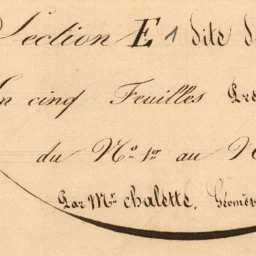 Section E 1 dite d
En cinq Feuilles Pre
du N.º 1.er au N
Par M.r chalette, Géomèt